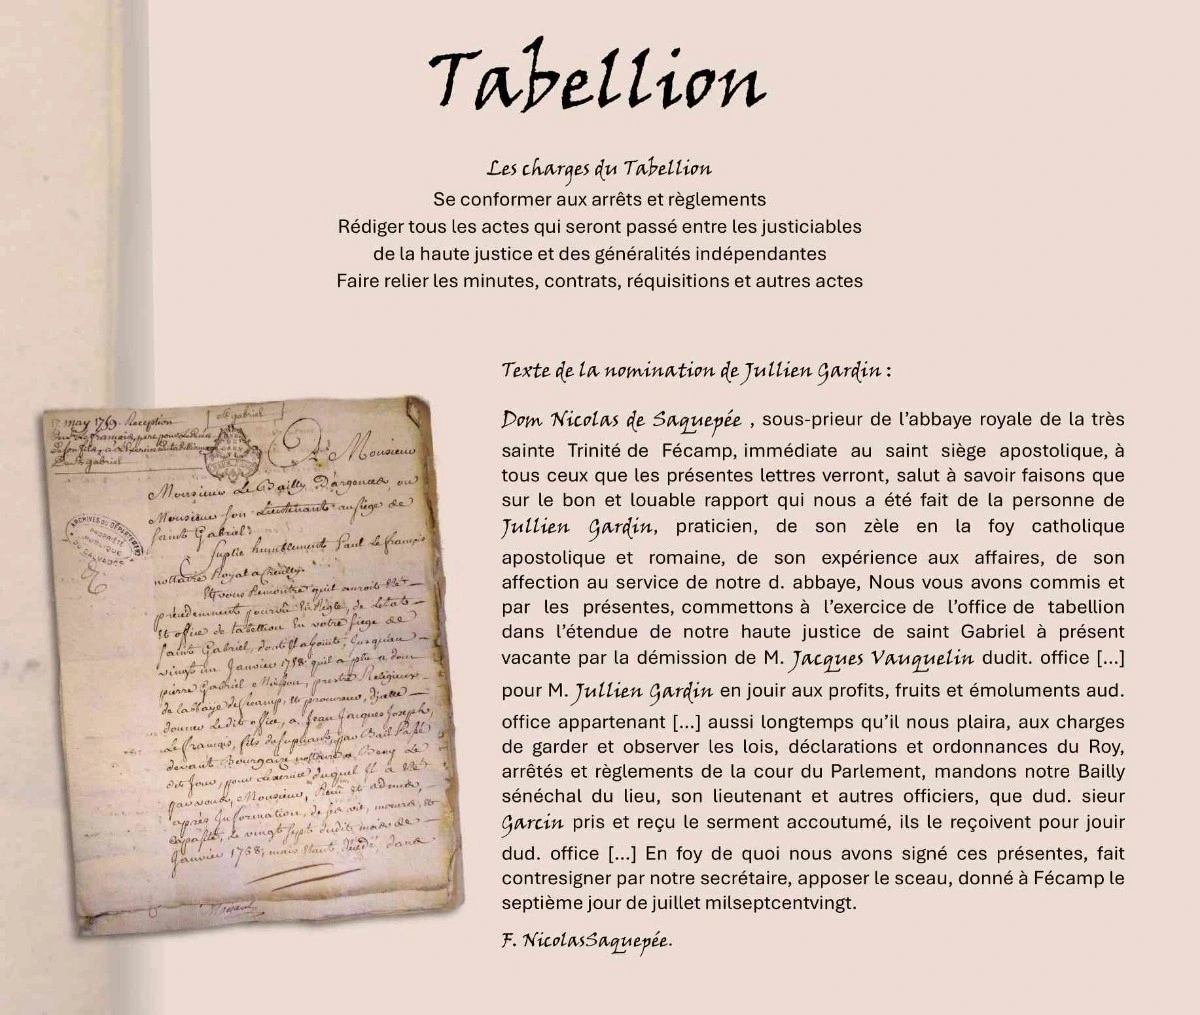 Tabellion
Les charges du Tabellion
Se conformer aux arrêts et règlements
Rédiger tous les actes qui seront passé entre les justiciables
de la haute justice et des généralités indépendantes
Faire relier les minutes, contrats, réquisitions et autres actes
Texte de la nomination de Jullien Gardin :
Dom Nicolas de Saquepée , sous-prieur de l'abbaye royale de la très
sainte Trinité de Fécamp, immédiate au saint siège apostolique, à
tous ceux que les présentes lettres verront, salut à savoir faisons que
sur le bon et louable rapport qui nous a été fait de la personne de
Jullien Gardin, praticien, de son zèle en la foy catholique
apostolique et romaine, de son expérience aux affaires, de son
affection au service de notre d. abbaye, Nous vous avons commis et
par les présentes, commettons à l'exercice de l'office de tabellion
dans l'étendue de notre haute justice de saint Gabriel à présent
vacante par la démission de M. Jacques Vauquelin dudit. office [...]
pour M. Jullien Gardin en jouir aux profits, fruits et émoluments aud.
office appartenant [...] aussi longtemps qu'il nous plaira, aux charges
de garder et observer les lois, déclarations et ordonnances du Roy,
arrêtés et règlements de la cour du Parlement, mandons notre Bailly
sénéchal du lieu, son lieutenant et autres officiers, que dud. sieur
Garcin pris et reçu le serment accoutumé, ils le reçoivent pour jouir
dud. office [...] En foy de quoi nous avons signé ces présentes, fait
contresigner par notre secrétaire, apposer le sceau, donné à Fécamp le
septième jour de juillet milseptcentvingt.
F. NicolasSaquepée.
7 may 1769. Reception
St gabriel
A Monsieur
Monsieur Le Bailly D'argences, ou
Monsieur son Lieutenant au siège de
saint Gabriel
ARCHIVES DU DÉPARTEMENT
PROPRIÉTÉ
PUBLIQUE
DU CALVADOS
Suplie humblement Paul Le françois
nottaire Royal a Creully
office de tabellion En votre siege de
saint Gabriel
vingt un Janvier 1758
pierre Gabriel
de labbaye de fecamp
donner Ledit office, a Jean Jacques Joseph
Le françois, fils du supliant
devant Bourgaise
par vous, Monsieur
après Information, de sa vie, moeurs, et
capacité, Le vingt sept dudit mois de
Janvier 1758; mais Etant décédé, dans